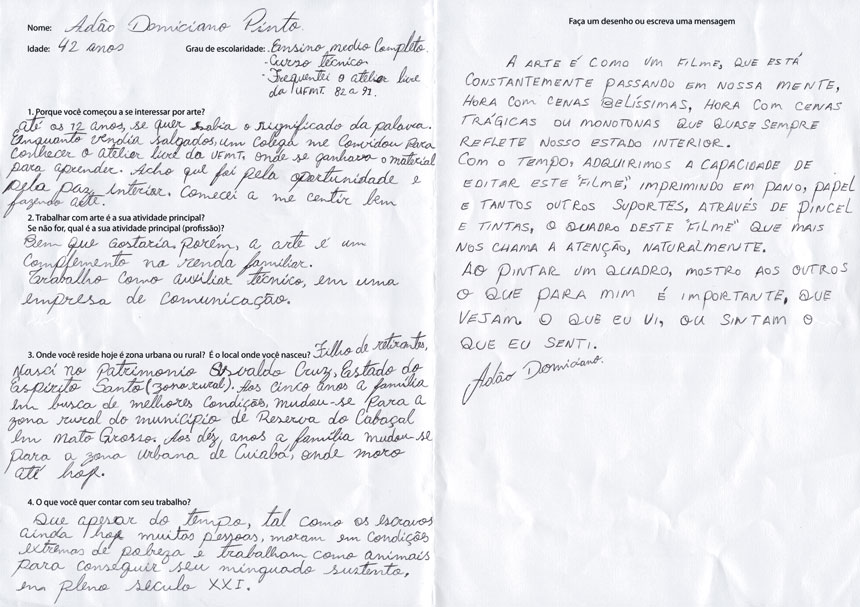 Nome: Adão Domiciano Pinto
Idade: 42 anos Grau de escolaridade: Ensino medio Completo.
· Curso técnico
· Frequentei o atelier livre
da UFMT. 82 a 91.
1. Porque você começou a se interessar por arte?
até os 12 anos, se quer sabia o significado da palavra.
Enquanto vendia salgados, um colega me convidou para
conhecer o atelier livre da UFMT, onde se ganhava o material
para aprender. Acho que foi pela oportunidade e
pela paz interior. Comecei a me centir bem
fazendo arte.
2. Trabalhar com arte é a sua atividade principal?
Se não for, qual é a sua atividade principal (profissão)?
Bem que gostaria, porém, a arte é um
complemento na renda familiar.
Trabalho como auxiliar técnico, em uma
empresa de comunicação.
3. Onde você reside hoje é zona urbana ou rural? É o local onde você nasceu? Filho de retirantes,
Nasci no Patrimonio Osvaldo Cruz, Estado do
Espírito Santo (zona rural). Aos cinco anos a família
em busca de melhores condições, mudou-se para a
zona rural do município de Reserva do Cabaçal
em Mato Grosso. Aos dez, anos a família mudou-se
para a zona urbana de Cuiabá, onde moro
até hoje.
4. O que você quer contar com seu trabalho?
Que apesar do tempo, tal como os escravos
ainda hoje muitas pessoas, moram em condições
extremas de pobeza e trabalham como animais
para conseguir seu minguado sustento,
em pleno século XXI.
Faça um desenho ou escreva uma mensagem
A ARTE É COMO UM FILME, QUE ESTÁ
CONSTANTEMENTE PASSANDO EM NOSSA MENTE,
HORA COM CENAS BELÍSSIMAS, HORA COM CENAS
TRÁGICAS OU MONOTONAS QUE QUASE SEMPRE
REFLETE NOSSO ESTADO INTERIOR.
COM O TEMPO, ADQUIRIMOS A CAPACIDADE DE
EDITAR ESTE "FILME", IMPRIMINDO EM PANO, PAPEL
E TANTOS OUTROS SUPORTES, ATRAVÉS DE PINCEL
E TINTAS, O QUADRO DESTE "FILME" QUE MAIS
NOS CHAMA A ATENÇÃO, NATURALMENTE.
AO PINTAR UM QUADRO, MOSTRO AOS OUTROS
O QUE PARA MIM É IMPORTANTE, QUE
VEJAM O QUE EU VI, OU SINTAM O
QUE EU SENTI.
Adão Domiciano.